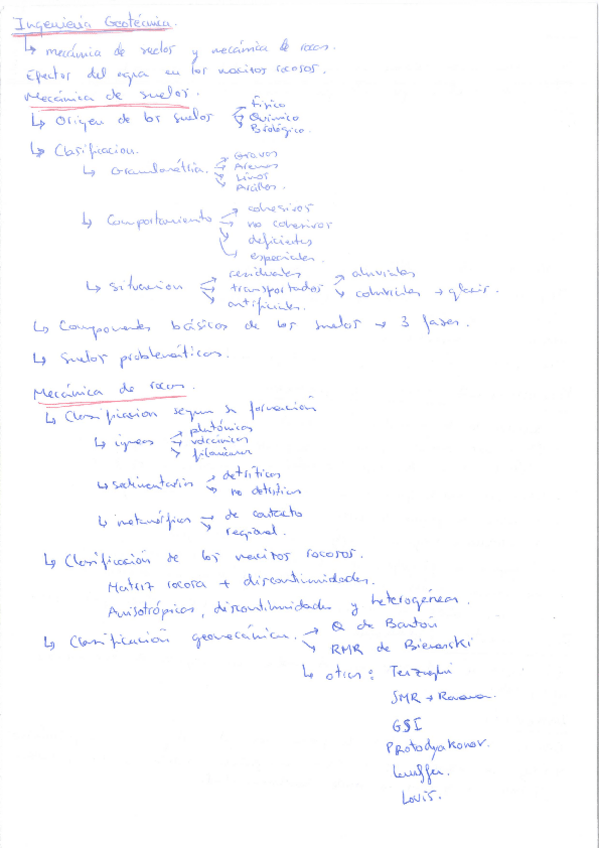 Ingeniería Geotécnica.
↳ mecánica de suelos y mecánica de rocas.
Efectos del agua en los macizos rocosos.
Mecánica de suelos.
↳ Origen de los suelos → Físico
→ Químico
→ Biológico.
↳ Clasificacion.
↳ Granulométria. → Gravas
→ Arenas
→ Limos
→ Arcillas.
↳ Comportamiento → cohesivos
→ no cohesivos
→ deficientes
→ especiales.
↳ situacion → residuales
→ transportados → aluviales
→ coluviales → glacis.
→ artificiales.
↳ Componentes básicos de los suelos → 3 fases.
↳ Suelos problemáticos.
Mecánica de rocas.
↳ Clasificacion segun su formación
↳ ígneas → plutónicas
→ volcánicas
→ filonianas
↳ sedimentarias → detríticas
→ no detríticas
↳ metamórficas → de contacto
→ regional.
↳ Clasificación de los macizos rocosos.
Matriz rocosa + discontinuidades.
Anisotrópicos, discontinuidades y heterogéneas.
↳ Clasificación geomecánica. → Q de Barton
→ RMR de Bieniawski
↳ otras: Terzaghi
SMR → Romana.
GSI
Protodyakonov.
Lauffer.
Louis.